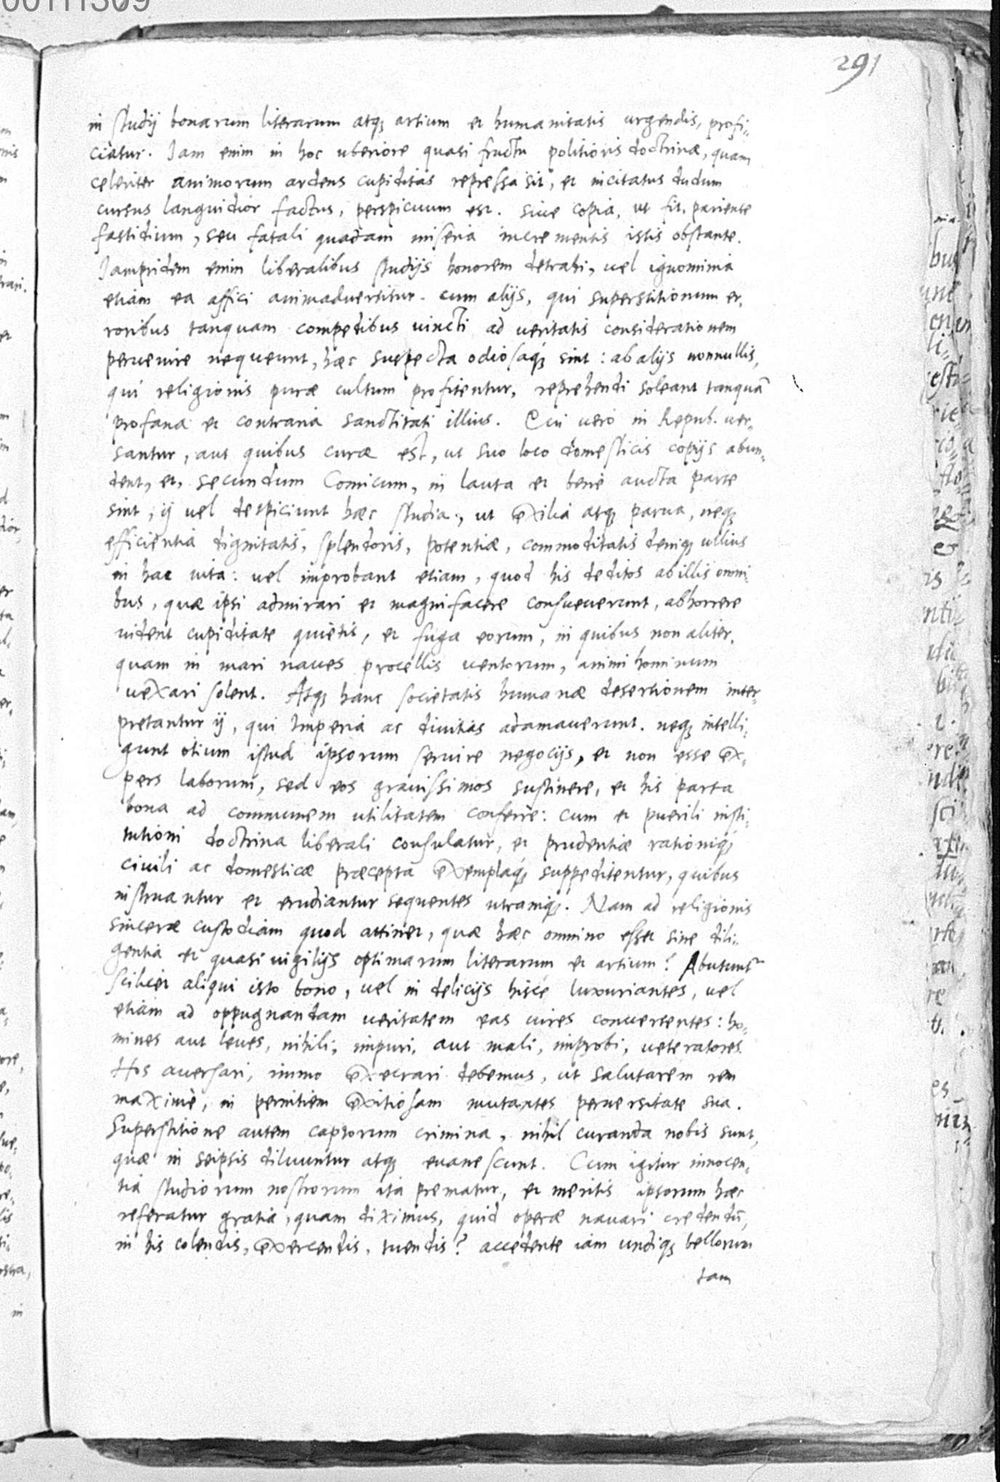 00111309
291
in studij bonarum literarum atq; artium et humanitatis urgendis, profi-
ciatur. Iam enim in hoc uberiore quasi fructu politioris doctrinæ, quam
celeriter animorum ardens cupiditas repressa sit, et incitatus dudum
cursus languidior factus, perspicuum est. Siue copia, ut fit, pariente
fastidium, seu fatali quadam miseria incrementis istis obstante.
Iampridem enim liberalibus studijs honorem detrahi, uel ignominia
etiam ea affici animaduertitur. cum alijs, qui superstitionum er-
roribus tanquam compedibus uincti ad ueritatis considerationem
peruenire nequeunt, hæc suspecta odiosaq; sint: ab alijs nonnullis,
qui religionis puræ cultum profitentur, reprehendi soleant tanquã
profana et contraria sanctitati illius. Qui uero in Repub. uer-
santur, aut quibus curæ est, ut suo loco domesticis copijs abun-
dent, et, secundum Comicum, in lauta et bene aucta parte
sint, ij uel despiciunt hæc studia, ut exilia atq; parua, neq;
efficientia dignitatis, splendoris, potentiæ, commoditatis deniq; ullius
in hac uita: uel improbant etiam, quod his deditos ab illis omni
bus, quæ ipsi admirari et magnifacere consueuerunt, abhorrere
uident cupiditate quietis, et fuga eorum, in quibus non aliter,
quam in mari naues procellis uentorum, animi hominum
uexari solent. Atq; hanc societatis humanæ desertionem inter-
pretantur ij, qui Imperia ac diuitias adamauerunt. neq; intelli-
gunt otium istud ipsorum seruire negocijs, et non esse ex-
pers laborum, sed eos grauissimos sustinere, et his parta
bona ad communem utilitatem conferre: cum et puerili insti-
tutioni doctrina liberali consulatur, et prudentiæ rationiq;
ciuili ac domesticæ præcepta exemplaq; suppeditentur, quibus
instruantur et erudiantur sequentes utramq;. Nam ad religionis
sinceræ custodiam quod attinet, quæ hæc omnino esset sine dili-
gentia et quasi uigilijs optimarum literarum et artium? Abutunt'
scilicet aliqui isto bono, uel in delicijs hisce luxuriantes, uel
etiam ad oppugnandam ueritatem eas uires conuertentes: ho-
mines aut leues, nihili, impuri, aut mali, improbi, ueteratores.
Hos auersari, immo execrari debemus, ut salutarem rem
maxime, in pernitiem exitiosam mutantes peruersitate sua.
Superstitione autem captorum crimina, nihil curanda nobis sunt,
quæ in seipsis diluuntur atq; euanescunt. Cum igitur innocen-
tia studiorum nostrorum ita prematur, et meritis ipsorum hæc
referatur gratia, quam diximus, quid operæ nauari credendũ,
in his colendis, exercendis, tuendis? accedente iam undiq; bellorum
tam